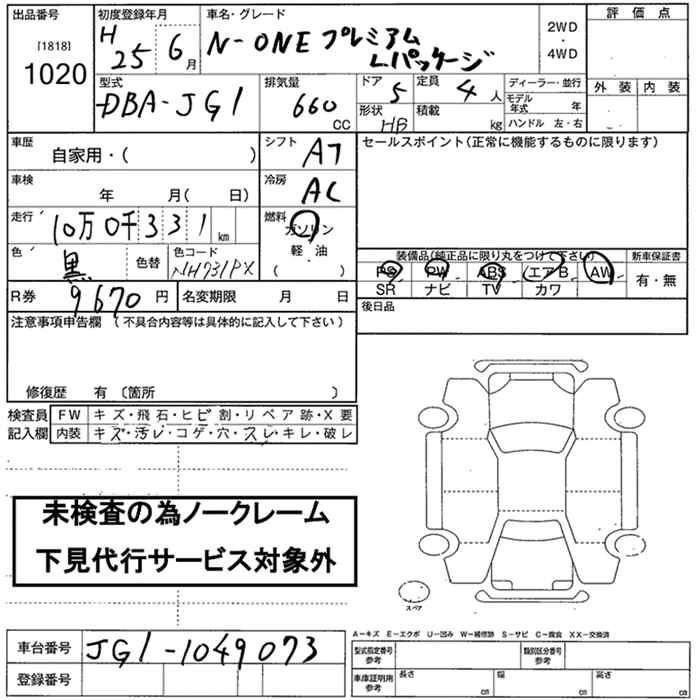 出品番号 初度登録年月 車名・グレード 2WD・4WD 評価点
[1818] 1020 H25 6月 N-ONE プレミアム
Lパッケージ
型式 排気量 ドア 定員 ディーラー・並行 外装 内装
DBA-JG1 660 CC 5 4人 モデル年式 年
形状 HB 積載 kg ハンドル 左・右
車歴 シフト セールスポイント(正常に機能するものに限ります)
自家用・( ) AT
車検 冷房
年 月( 日) AC
走行 10万0千331km 燃料 ガソリン
軽・油
( )
色 黒 色替 色コード NH731PX
装備品(純正品に限り丸をつけて下さい) 新車保証書
PS PW ABS エアB AW 有・無
SR ナビ TV カワ
R券 9670円 名変期限 月 日 後日品
注意事項申告欄 (不具合内容等は具体的に記入して下さい)
修復歴 有 〔箇所 〕
検査員 FW キズ・飛石・ヒビ割・リペア跡・X要
記入欄 内装 キズ・汚レ・コゲ・穴・スレ・キレ・破レ
未検査の為ノークレーム
下見代行サービス対象外
スペア
A-キズ E-エクボ U-凹み W-補修跡 S-サビ C-腐食 XX-交換済
車台番号 JG1-1049073 型式指定番号 参考 類別区分番号 参考
登録番号 車庫証明用 参考 長さ cm 幅 cm 高さ cm